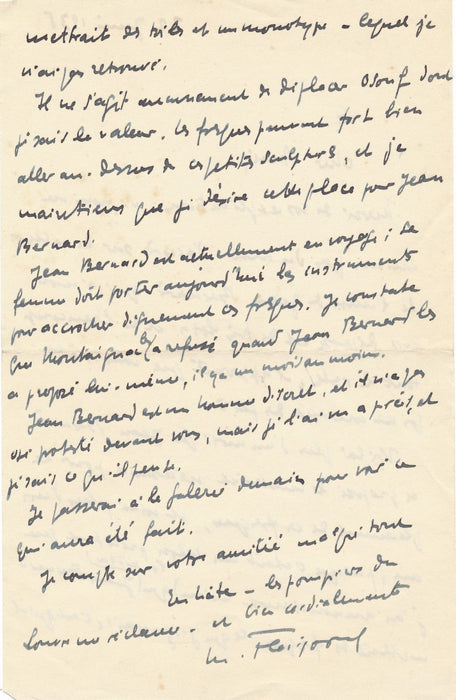 mettrait des toiles et un monotype – lequel je
n'ai pas retrouvé.
Il ne s'agit aucunement de déplacer Osouf dont
je sais la valeur. Les fresques peuvent fort bien
aller au-dessus de ces petites sculptures, et je
maintiens que je désire cette place pour Jean
Bernard.
Jean Bernard est actuellement en voyage ; sa
femme doit porter aujourd'hui les instruments
pour accrocher dignement ces fresques. Je constate
que Montaignac les a refusé quand Jean Bernard les
a proposé lui-même, il y a un mois au moins.
Jean Bernard est un homme discret, et il n'a pas
protesté devant vous, mais je l'ai vu après, et
je sais ce qu'il pense.
Je passerai à la galerie demain pour voir ce
qui aura été fait.
Je compte sur votre amitié malgré tout
En hâte – les pompiers du
Louvre me réclament – et bien cordialement